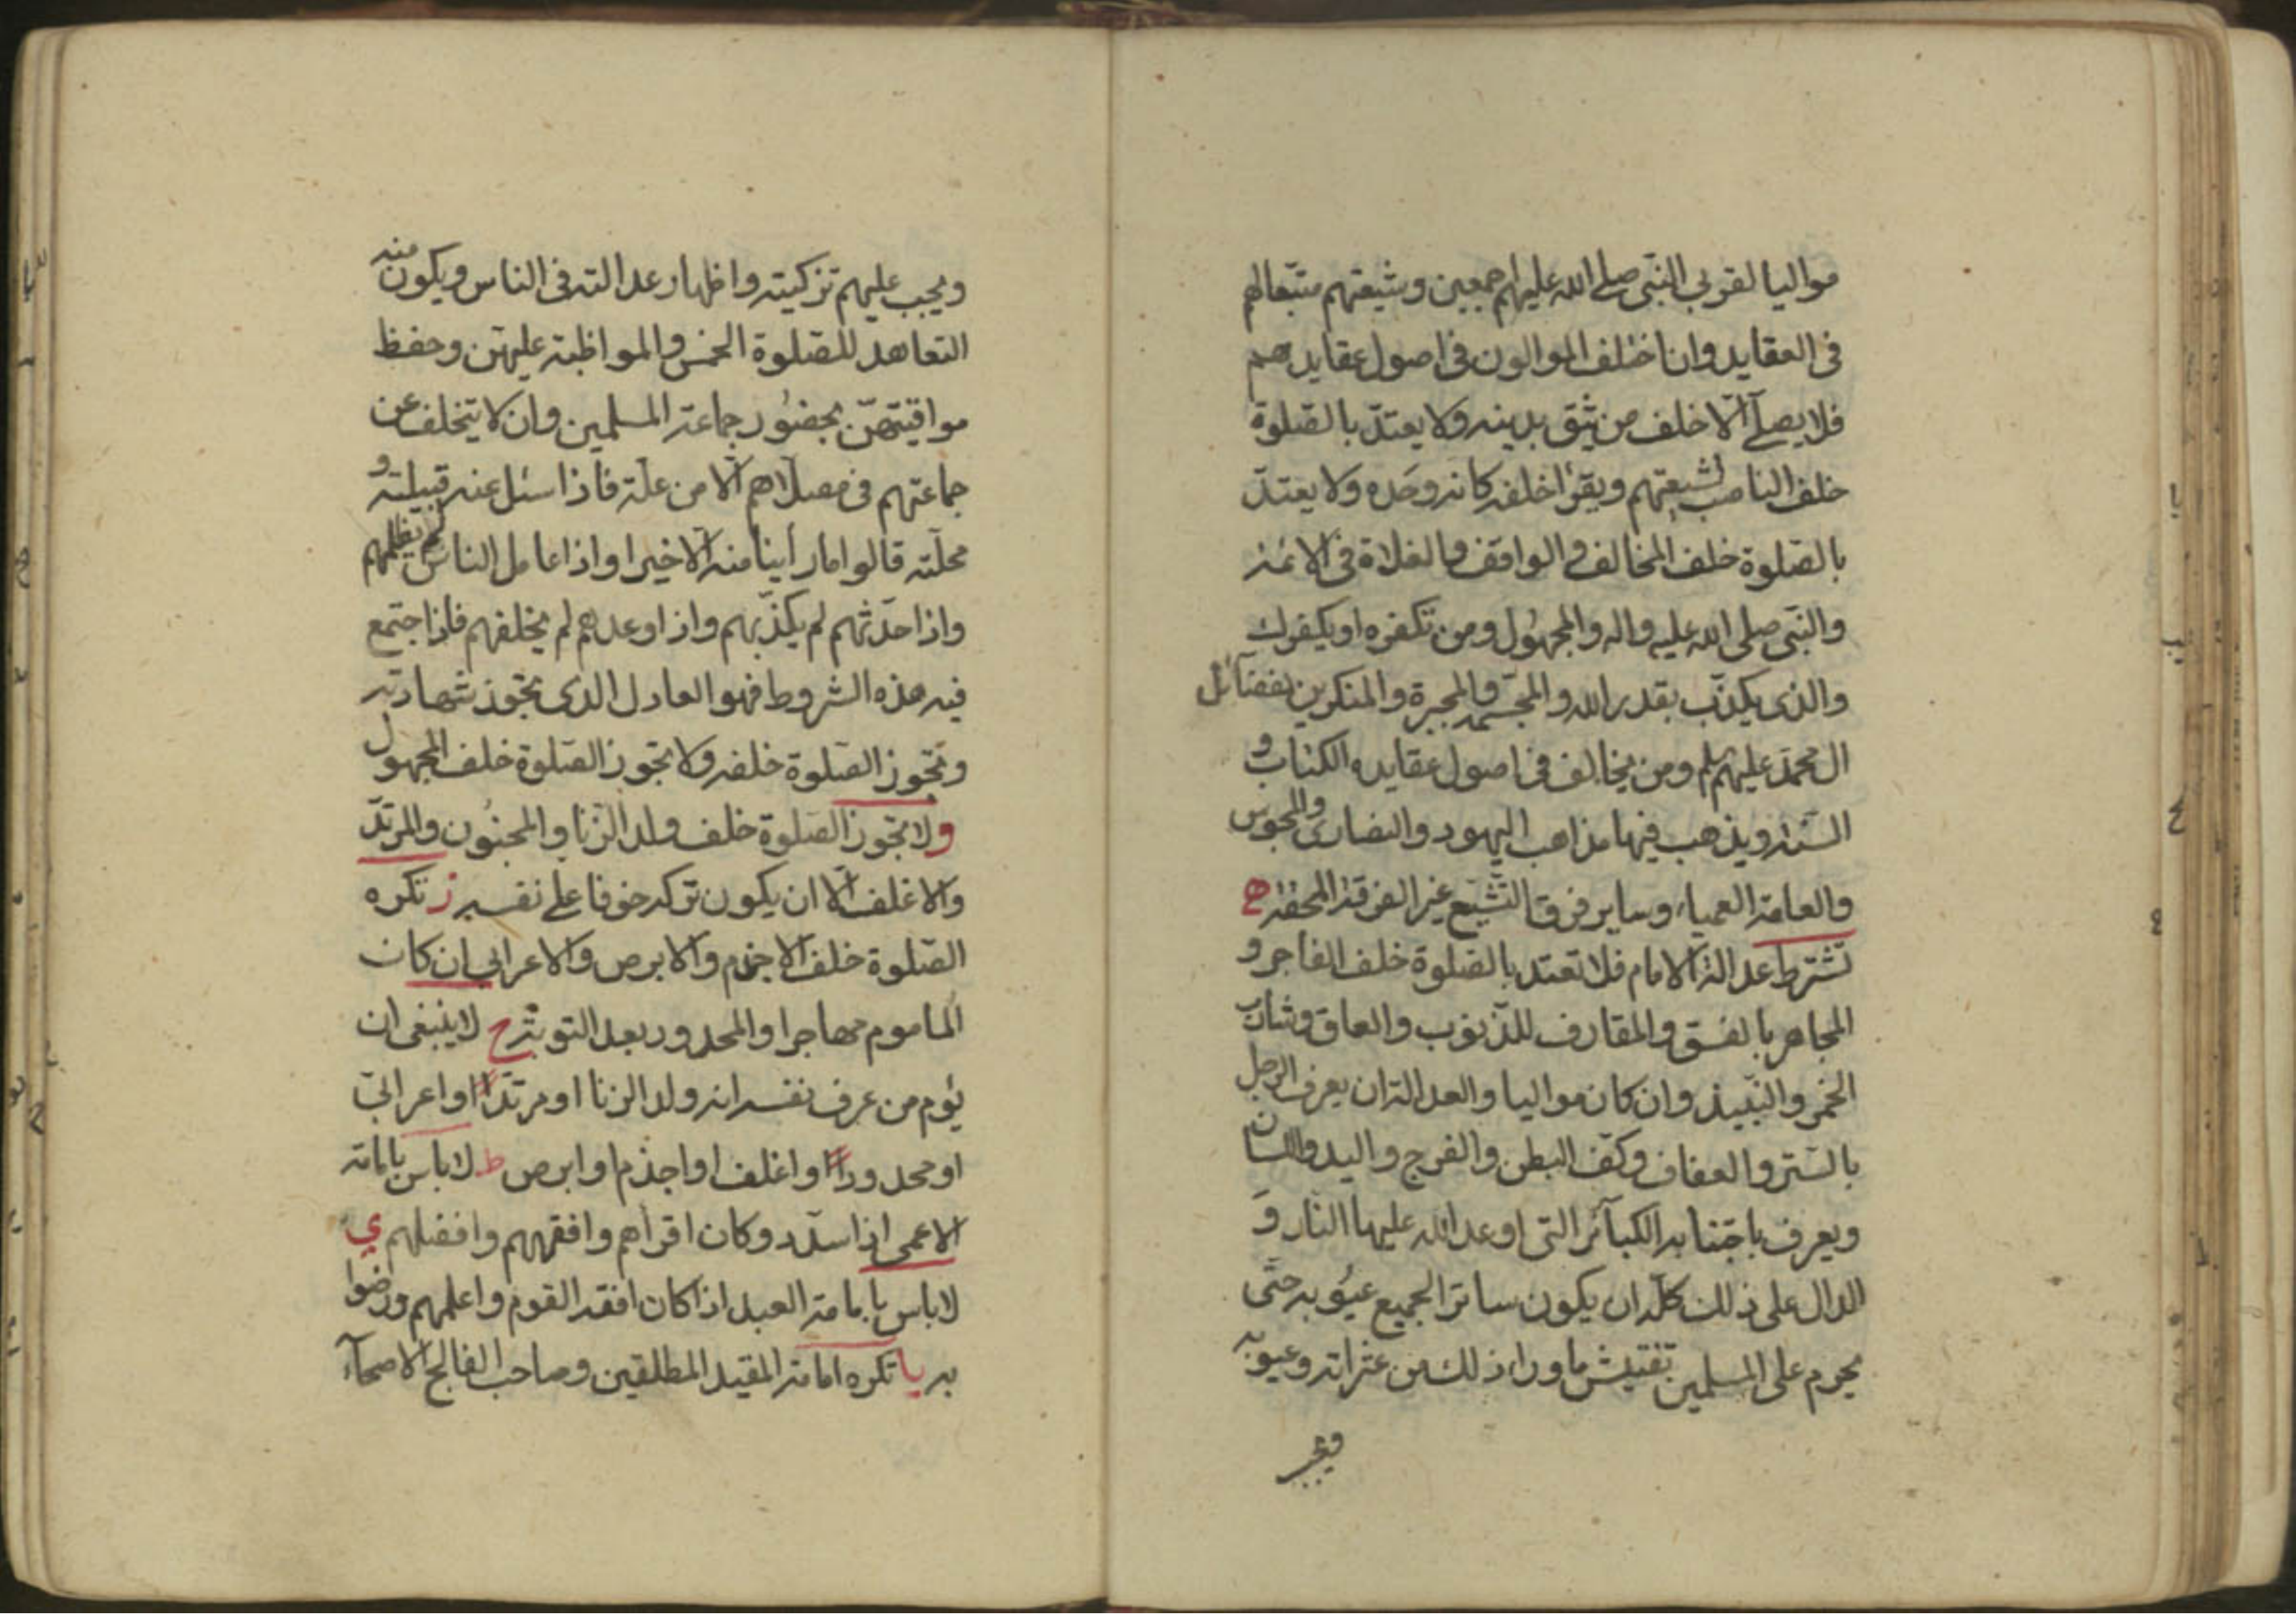 مواليا لقربي النبي صلي الله عليهم اجمعين وشيعتهم متبعا لهم
في العقايد وان اختلف الموالون في اصول عقايدهم
فلا يصلے الا خلف من يثق بدينه ولا يعتد بالصلوة
خلف الناصب لشيعتهم ويقرا خلفه كانه وحده ولا يعتد
بالصلوة خلف المخالف والواقف والغلاة في الائمة
والنبي صلى الله عليه واله والمجهول ومن تكفره او يكفرك
والذي يكذب بقدر الله والمجسمة والمجبرة والمنكرين بفضائل
ال محمد عليهم ومن يخالف في اصول عقايده الكتاب و
السنة ويذهب فيها مذاهب اليهود والنصارى والمجوس
والعامة العمياء وساير فرق التشيع غير الفرقة المحقة ه
تشترط عدالة الامام فلا تعتد بالصلوة خلف الفاجر و
المجاهر بالفسق والمقارف للذنوب والعاق وشارب
الخمر والنبيذ وان كان مواليا والعدالة ان يعرف الرجل
بالستر والعفاف وكف البطن والفرج واليد واللسان
ويعرف باجتنابه الكبآئر التي اوعد الله عليها النار و
الدال على ذلك كله ان يكون ساترا لجميع عيوبه حتى
يحرم على المسلمين تفتيش ما وراء ذلك من عثراته وعيوبه
ويجب
ويجب عليهم تزكيته واظهار عدالته في الناس ويكون منه
التعاهد للصلوة الخمس والمواظبة عليهن وحفظ
مواقيتهن بحضور جماعة المسلمين وان لا يتخلف عن
جماعتهم في مصلاهم الا من علة فاذا سئل عنه قبيلته و
محلته قالوا ما رأينا منه الا خيرا واذا عامل الناس لم يظلمهم
واذا حدثهم لم يكذبهم واذا وعدهم لم يخلفهم فاذا اجتمع
فيه هذه الشروط فهو العادل الذي تجوز شهادته
وتجوز الصلوة خلفه ولا تجوز الصلوة خلف المجهول
ولا تجوز الصلوة خلف ولد الزنا والمجنون والمرتد
والاغلف الا ان يكون تركه خوفا على نفسه ز تكره
الصلوة خلف الاجذم والابرص والاعرابي ان كان
الماموم مهاجرا والمحدود بعد التوبة ح لا ينبغي ان
يؤم من عرف نفسه انه ولد الزنا او مرتدا او اعرابي
او محدودا او اغلف او اجذم او ابرص ط لا باس بامامة
الاعمى اذا سدد وكان اقراهم وافقههم وافضلهم ي
لا باس بامامة العبد اذا كان افقه القوم واعلمهم ورضوا
به يا تكره امامة المقيد المطلقين وصاحب الفالج الاصحآء